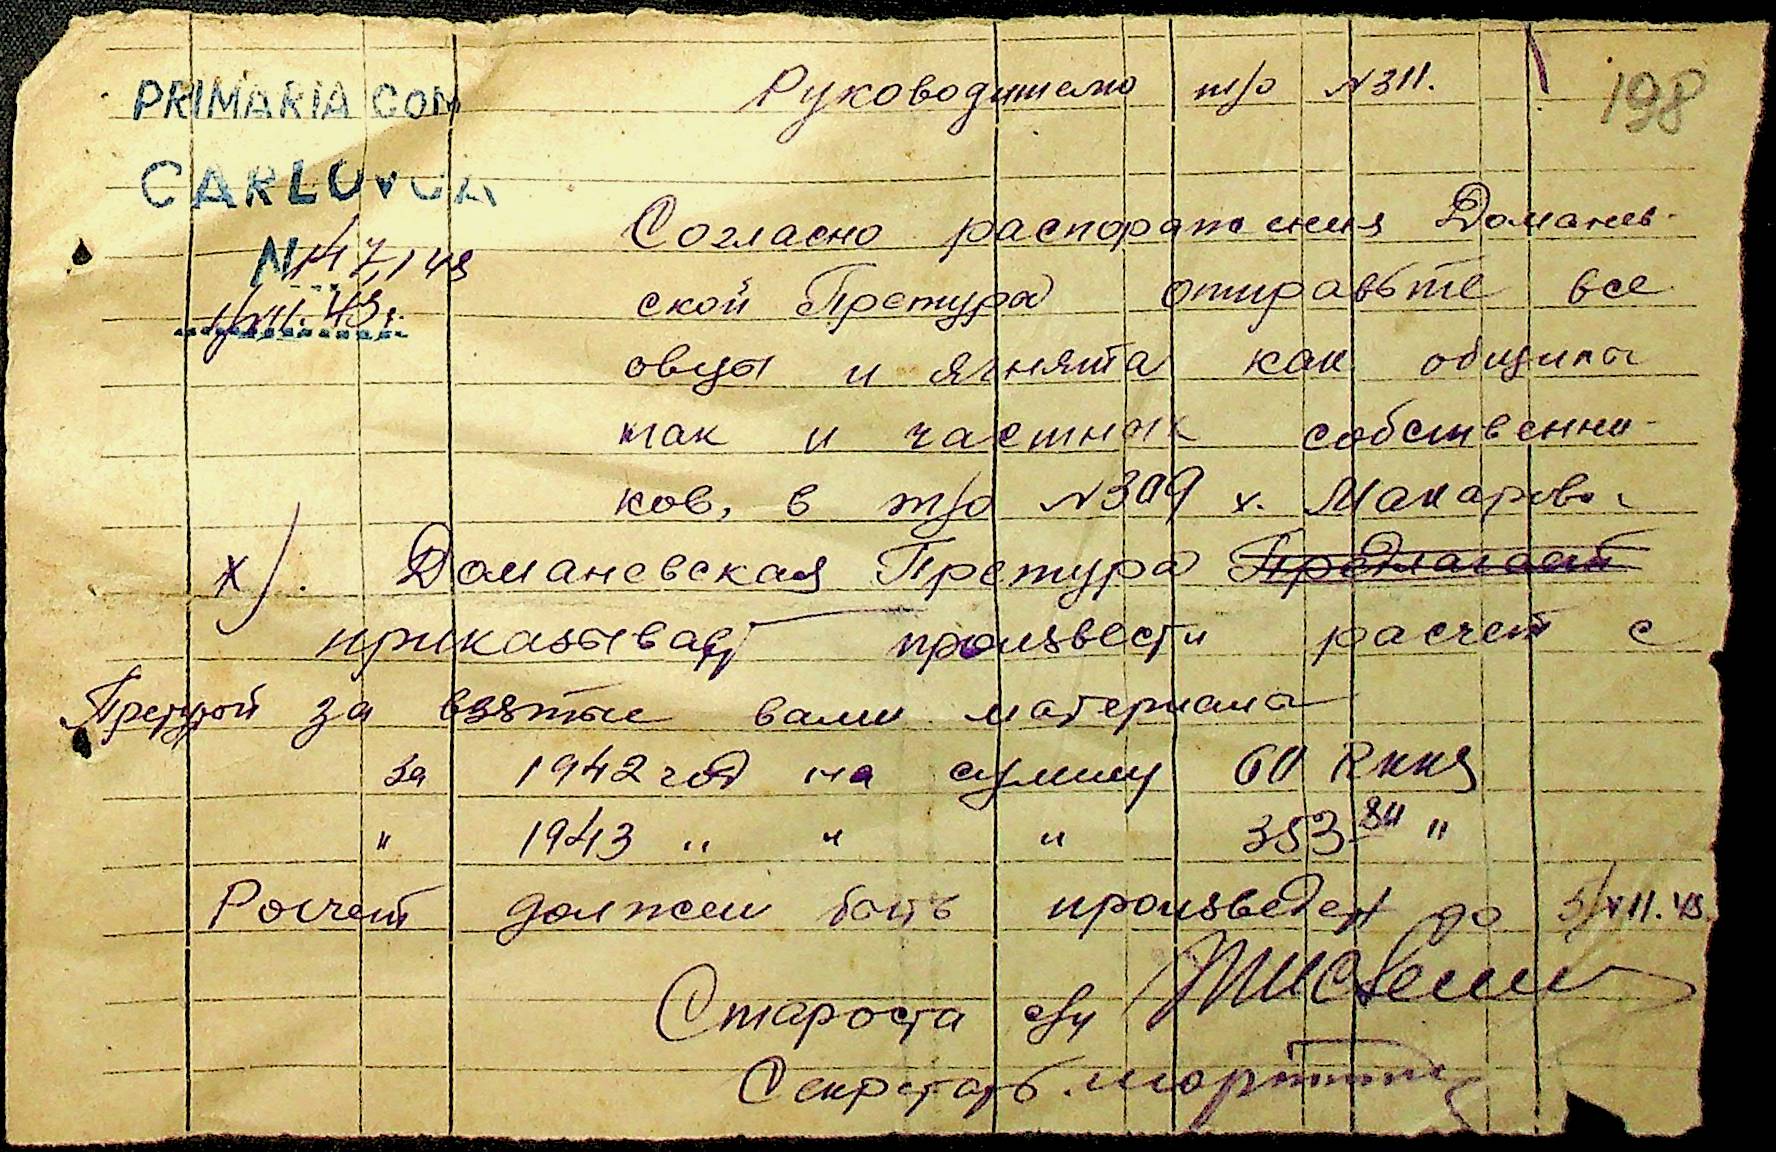 PRIMARIA COM
CARLOVCA
N 147/43
1/VII. 43 г.
198
Руководителю т/о N 311.
Согласно распоряжения Доманев-
ской Претуры отправьте все
овцы и ягнята как общины
так и частных собственни-
ков, в т/о N 309 х. Макарово.
х). Доманевская Претура Предлагает
приказывает произвести расчет с
Претурой за взятые вами материалы
за 1942 год на сумму 60 Rккs
" 1943 " " " 353 80 "
Расчет должен быть произведен до 5/VII. 43.
Староста
Секретарь